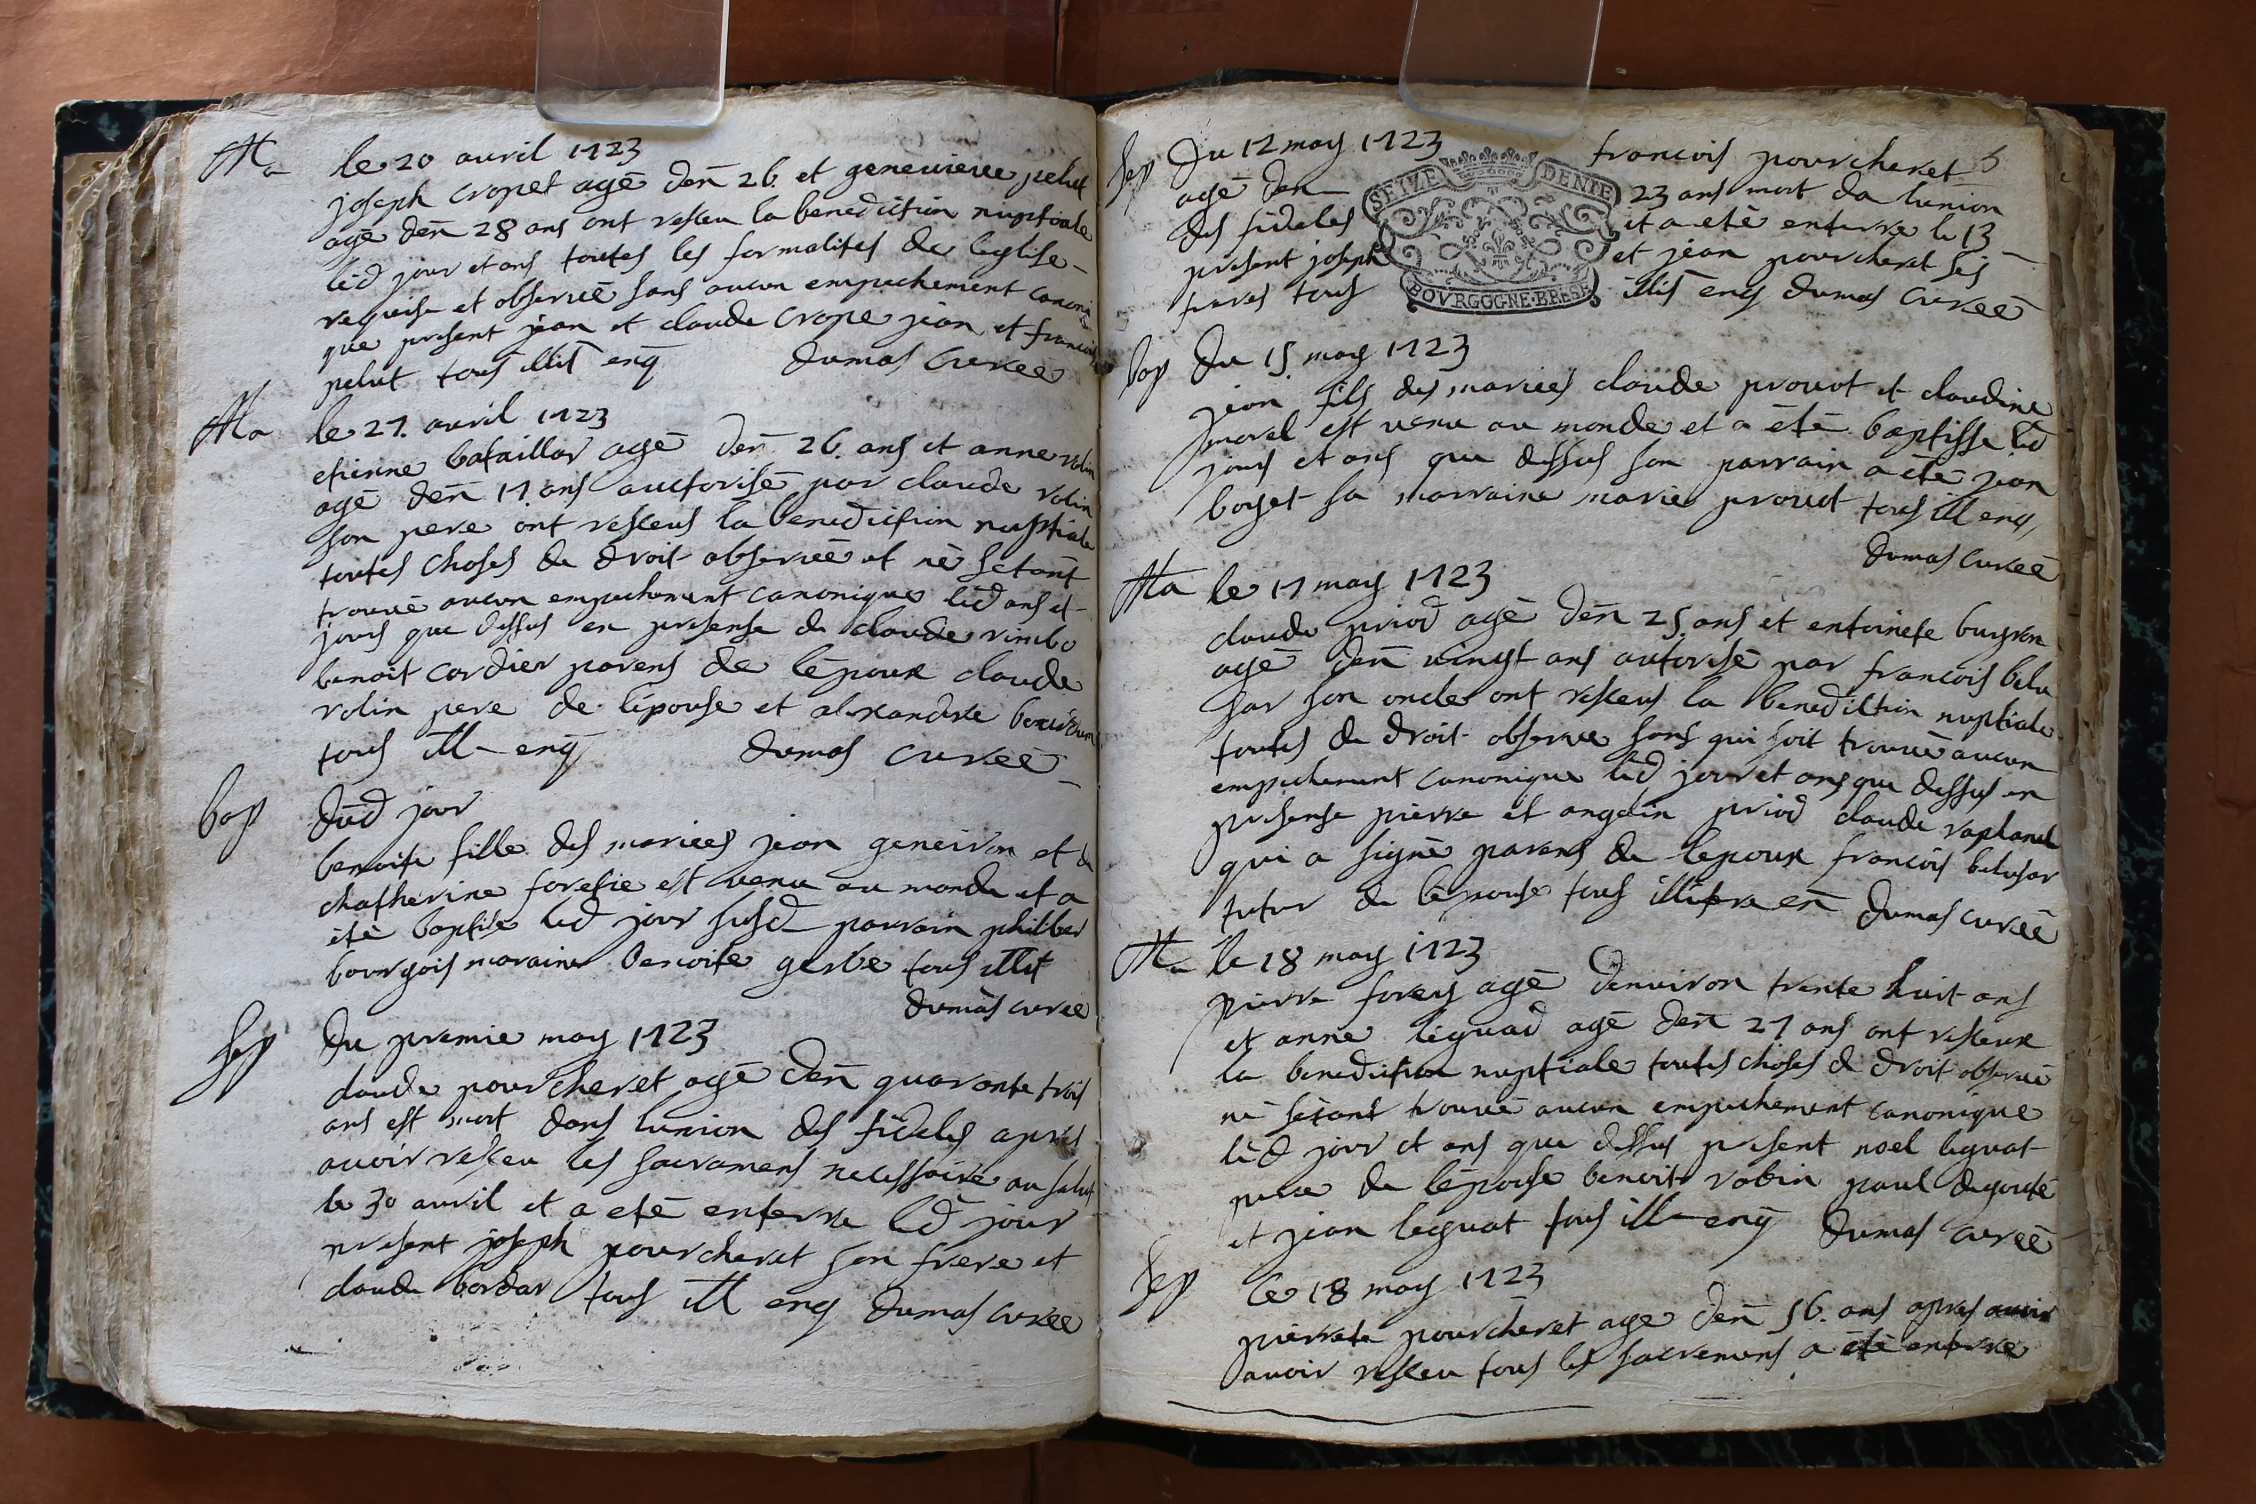 Ma le 20 avril 1723
joseph cropet agé den̄ 26. et genevieve pelut
agé den̄ 28 ans ont resceu la benediction nuptiale
led jour et ans toutes les formalites de leglise
requise et observeé sans aucun empechement canoni
que present jean et claude crope jean et francois
pelut tous illit enq dumas cureé
Ma le 27. avril 1723
etienne bataillar agé den̄ 26. ans et anne rolin
agé den̄ 17 ans auctorisé par claude rolin
son pere ont resceus la benediction nuptiale
toutes choses de droit observeé et ne setant
trouvé aucun empechement canonique led ans et
jours que dessus en presense de claude rimbo
benoit cordier parens de lépoux claude
rolin pere de lépouse et alexandre
tous ill enq dumas cureé
bap dud jour
benoite fille des marieés jean geneivon et de
chatherine foretie est venu au monde et a
été baptisé led jour susd parrain philber
bourgois maraine benoite gerbe tous illit
dumas cureé
sep du premie may 1723
claude pourcheret agé den̄ quarante trois
ans est mort dans lunion des fideles apres
avoir resceu les sacramens necessaire au salut
le 30 avril et a eté enterre led jour
present joseph pourcheret son frere et
claude bordar tous ill enq dumas cureé
5
sep du 12 may 1723 francois pourcheret
agé den 23 ans mort da lunion
des fideles et a eté enterre le 13
present joseph et jean pourcheret ses
freres tous illit enq dumas cureé
SEIZE DENIE
BOVRGOGNE·BRESE
bap du 15. may 1723
jean fils des marieés claude prouot et claudine
morel est venu au monde et a été baptisse led
jours et ans que dessus son parrain a été jean
borget sa marraine marie prouot tous ill enq
dumas cureé
Ma le 17 may 1723
claude priod agé den̄ 25. ans et entoinete buyron
agé den̄ vingt ans autorisé par francois belu
sar son oncle ont resceus la benediction nuptiale
toutes de droit observee sans qui soit trouvé aucun
empechement canonique led jour et ans que dessus en
presense pierre et angelin priod claude raphanel
qui a signé parens de lepoux francois belusar
tutur de lépouse tous dumas cureé
Ma le 18 may 1723
pierre forey agé denviron trente huit ans
et anne leguad agé den̄ 27 ans ont resceux
la benediction nuptiale toutes choses de droit observeé
ne setant trouvé aucun empechement canonique
led jour et ans que dessus present noel leguat
pere de lépouse benoit robin paul degouté
et jean leguat tous ill enq dumas cureé
sep le 18 may 1723
pierrete pourcheret age den̄ 56. ans apres avoir
avoir resceu tous les sacremens a été enterré